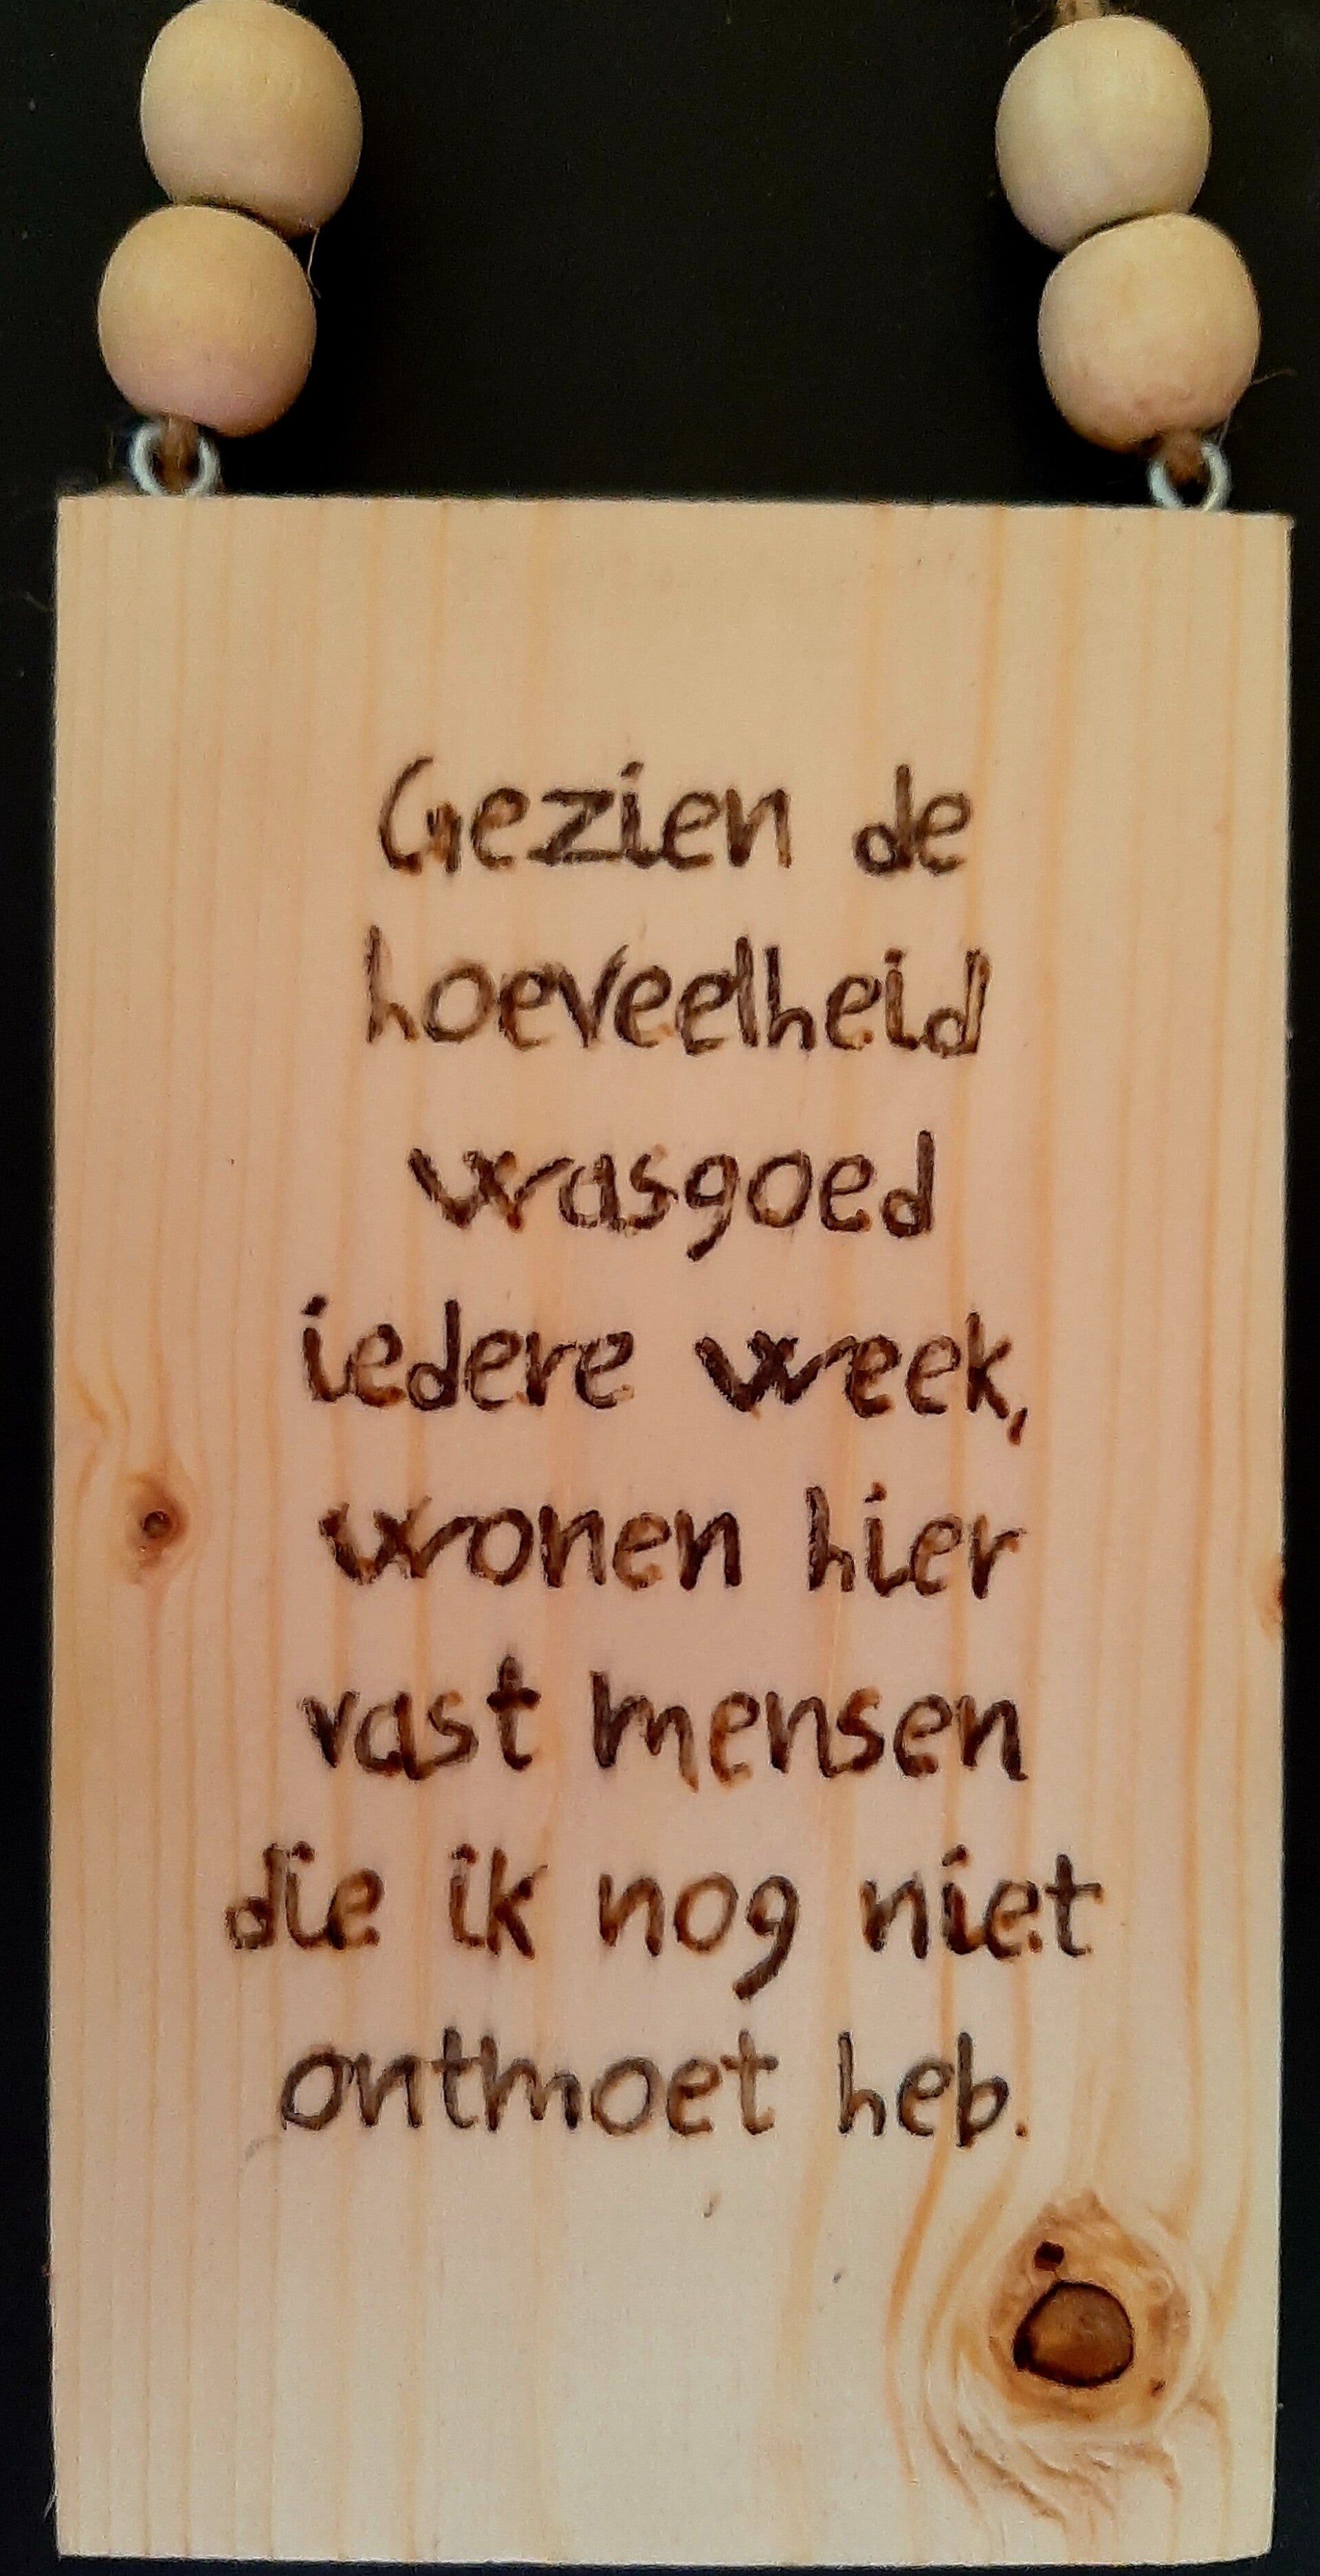 Gezien de
hoeveelheid
wasgoed
iedere week,
wonen hier
vast mensen
die ik nog niet
ontmoet heb.